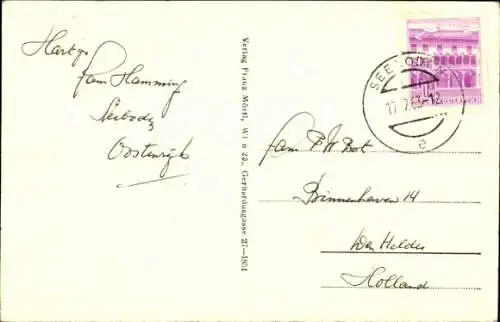 Hart gr
Fam Hamming
Seeboden
Oostenrijk
Verlag Franz Mörtl, Wien 20., Gerhardusgasse 27—1804
SEEBODEN
17.7.63-12
e
ÖSTERREICH
Fam P W Bot
Binnenhaven 14
Den Helder
Holland